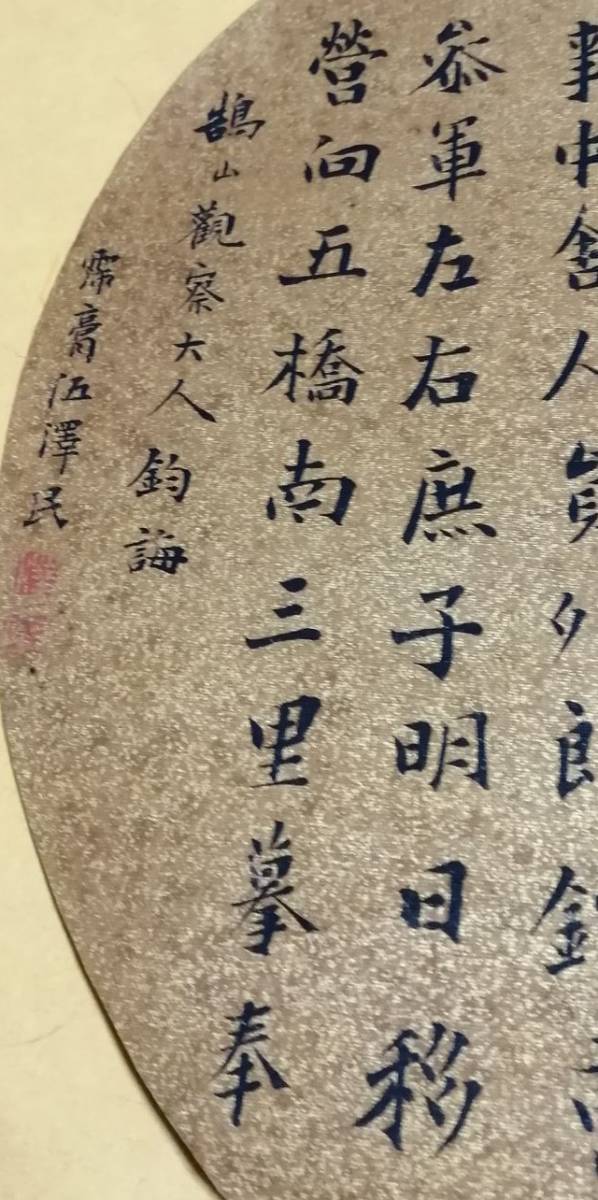 事中舍人員夕郎
叅軍左右庶子明日移
營向五橋南三里摹奉
鵠山觀察大人鈞誨
霈膏伍澤民